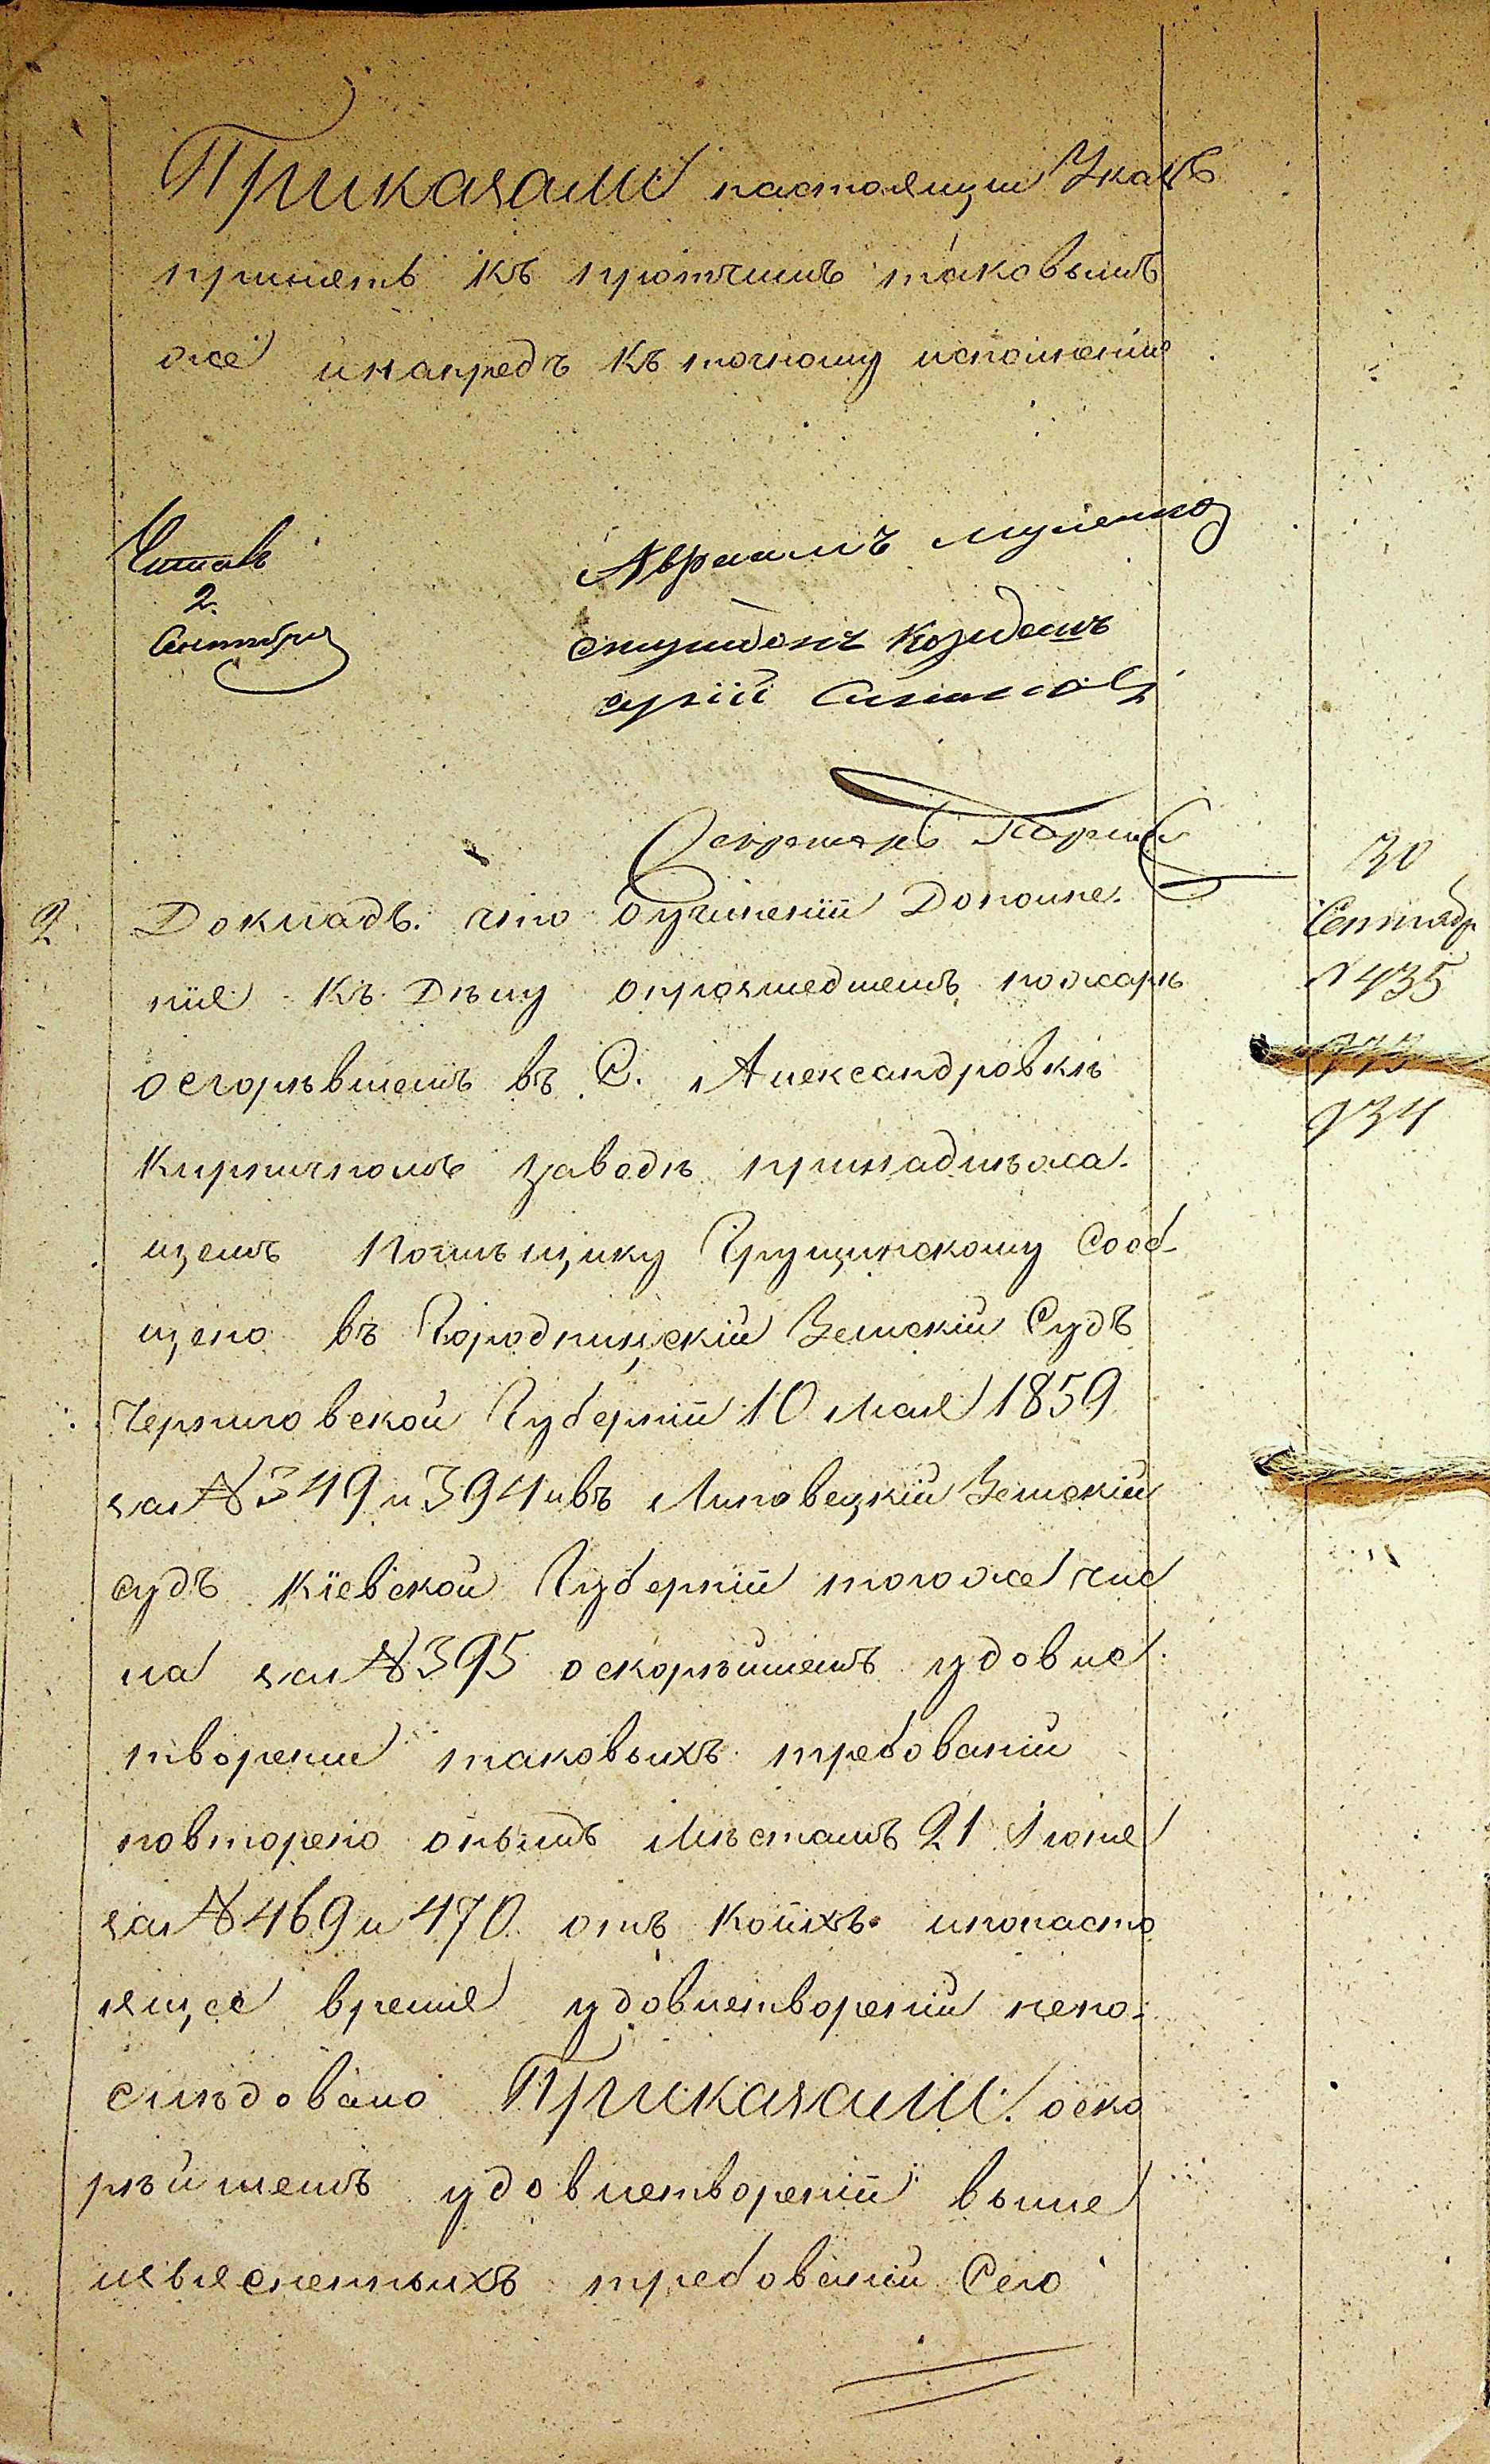 Приказали настоящии Указъ
принять къ протчимъ таковымъ
же инапредъ къ точному исполнению
Читалъ
2
Сентября
Авраамъ
арій
Секретарь
2. Докладъ. что Оучиненіи Дополне-
ніе къ Дѣлу опроизшедшемъ пожарѣ
осгорѣвшемъ въ С. Александровкѣ
Кирпичномъ заводѣ принадлѣжа-
щемъ Помѣщику Грущинскому Сооб-
щено въ Городницскій Земскій Судъ
Черниговской Губерніи 10 Мая 1859
за № 349 и 394 ивъ Липовецкій Земскій
судъ Кіевской Губерніи тогоже чис
ла за № 395 оскорѣйшемъ удовле-
творении таковыхъ требованій
повторено онымъ Мѣстамъ 21 Іюня
за № 469 и 470. отъ Коихъ ипонасто
ящее время удовлетвореніи непо-
слѣдовало Приказали. оско
рѣйшемъ удовлетвореніи выше
изъясненныхъ требованій Сего
30
Сентябр
№ 435
934